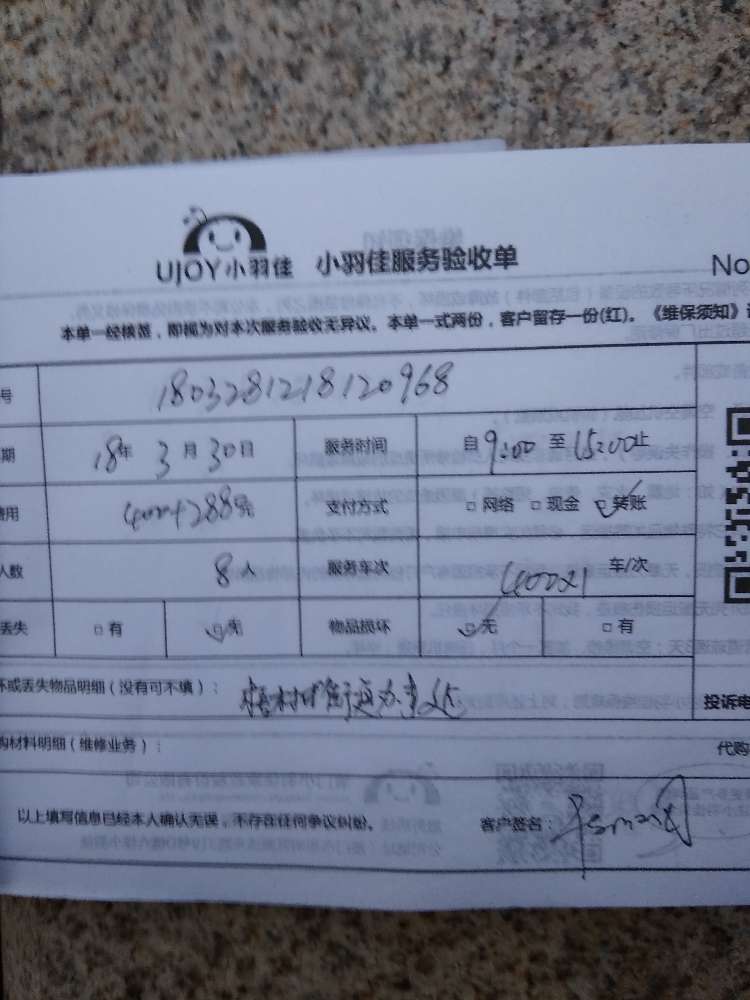 UJOY小羽佳 小羽佳服务验收单
No
本单一经核签，即视为对本次服务验收无异议。本单一式两份，客户留存一份(红)。《维保须知》
号 1803281218120968
期 18年 3月30日 服务时间 自9:00至15:00止
费用 400+288元 支付方式 □网络 □现金 ☑转账
人数 8人 服务车次 400x1 车/次
丢失 □有 ☑无 物品损坏 ☑无 □有
坏或丢失物品明细（没有可不填）： 梧村街道办事处
投诉电
购材料明细（维修业务）： 代购
以上填写信息已经本人确认无误，不存在任何争议纠纷。 客户签名：